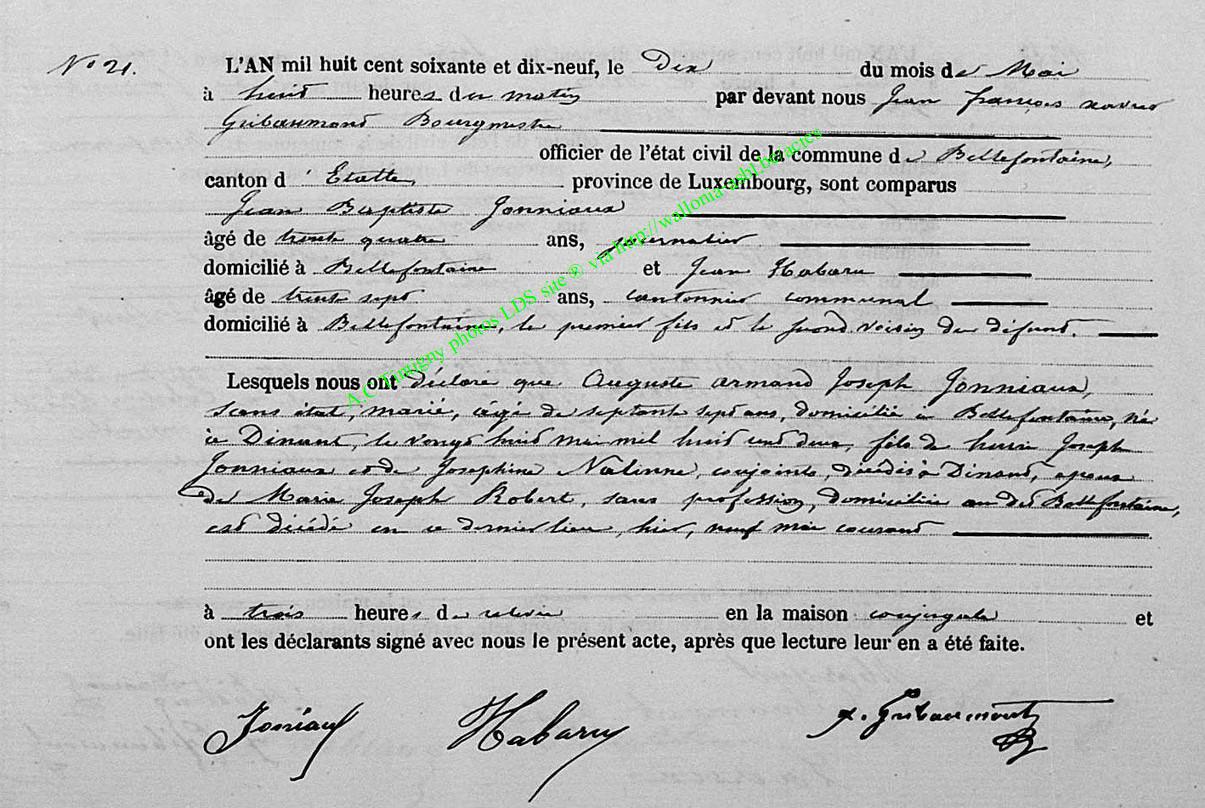 N° 21.
L'AN mil huit cent soixante et dix-neuf, le Dix du mois de Mai
à huit heures du matin par devant nous Jean françois xavier
Gribaumont Bourgmestre
officier de l'état civil de la commune de Bellefontaine,
canton d'Etalle, province de Luxembourg, sont comparus
Jean Baptiste Jonniaux
âgé de trente quatre ans, journalier
domicilié à Bellefontaine et Jean Habaru
âgé de trente sept ans, cantonnier communal
domicilié à Bellefontaine, le premier fils et le second voisin du défunt.
Lesquels nous ont déclaré que Auguste armand Joseph Jonniaux,
sans état, marié, âgé de septante sept ans, domicilié à Bellefontaine, né
à Dinant, le vingt huit mai mil huit cent deux, fils de henri Joseph
Jonniaux et de Josephine Nalinne, conjoints, décédés à Dinant, epoux
de Marie Joseph Robert, sans profession, domiciliée au dit Bellefontaine,
est décédé en ce dernier lieu, hier, neuf mai courant
à trois heures de relevée en la maison conjugale et
ont les déclarants signé avec nous le présent acte, après que lecture leur en a été faite.
Joniaux Habaru x. Gribaumont
A.C Tintigny photos LDS site ® via http://wallonia-asbl.be/actes